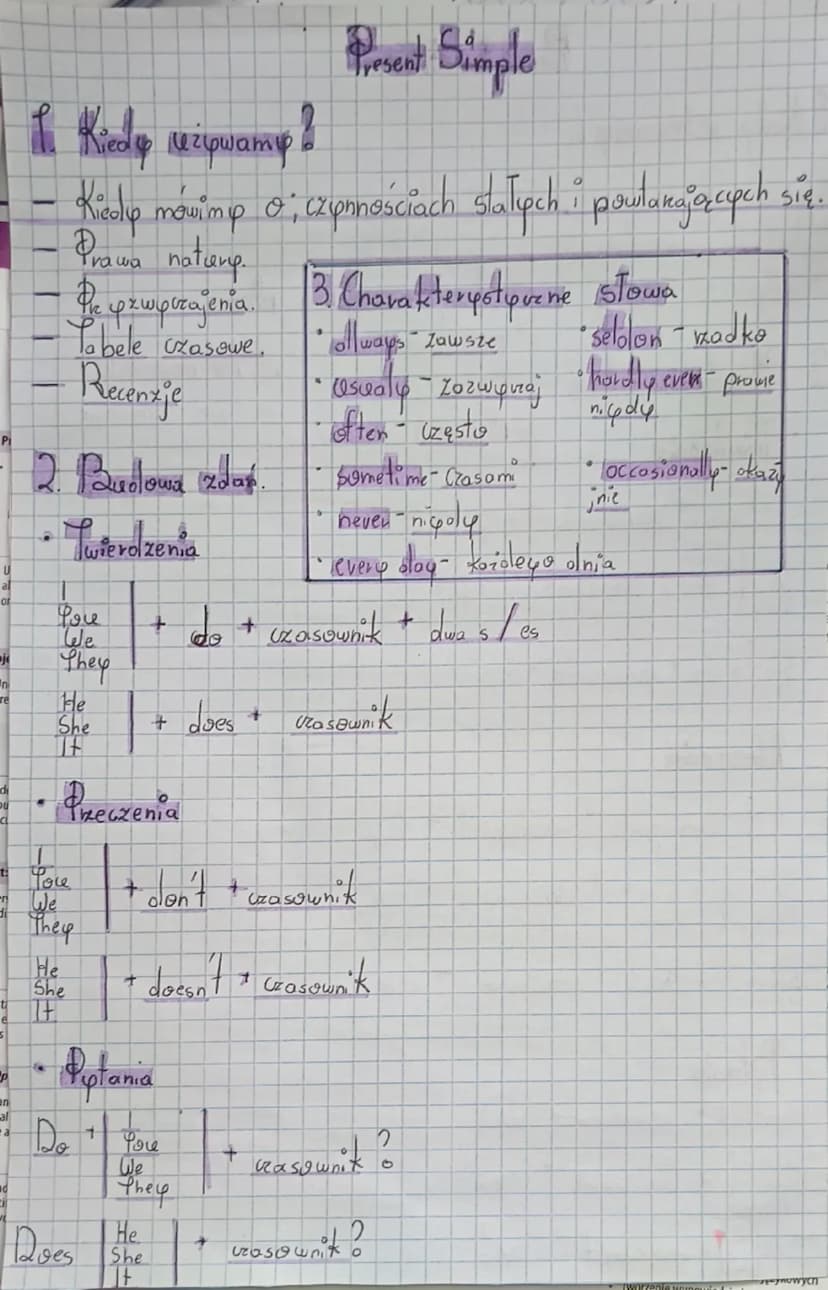 Present Simple
1. Kiedy używamy?
- Kiedy mówimy o; czynnościach stałych i powtarzających się.
- Prawa natury.
- Przyzwyczajenia.
- Tabele czasowe.
- Recenzje
3. Charakterystyczne słowa
• allways - zawsze
• usualy - zazwyczaj
• often - często
• sometime - czasami
• never - nigdy
• every day - każdego dnia
• seldon - rzadko
• hardly ever - prawie
nigdy
• occasionally - okazy
jnie
2. Budowa zdań.
• Twierdzenia
I
You
We
They
+ do + czasownik + dwa s/es
He
She
It
+ does + czasownik
• Przeczenia
I
You
We
They
+ don't + czasownik
He
She
It
+ doesn't + czasownik
• Pytania
Do +
I
You
We
They
+ czasownik?
Does
He
She
It
+ czasownik?